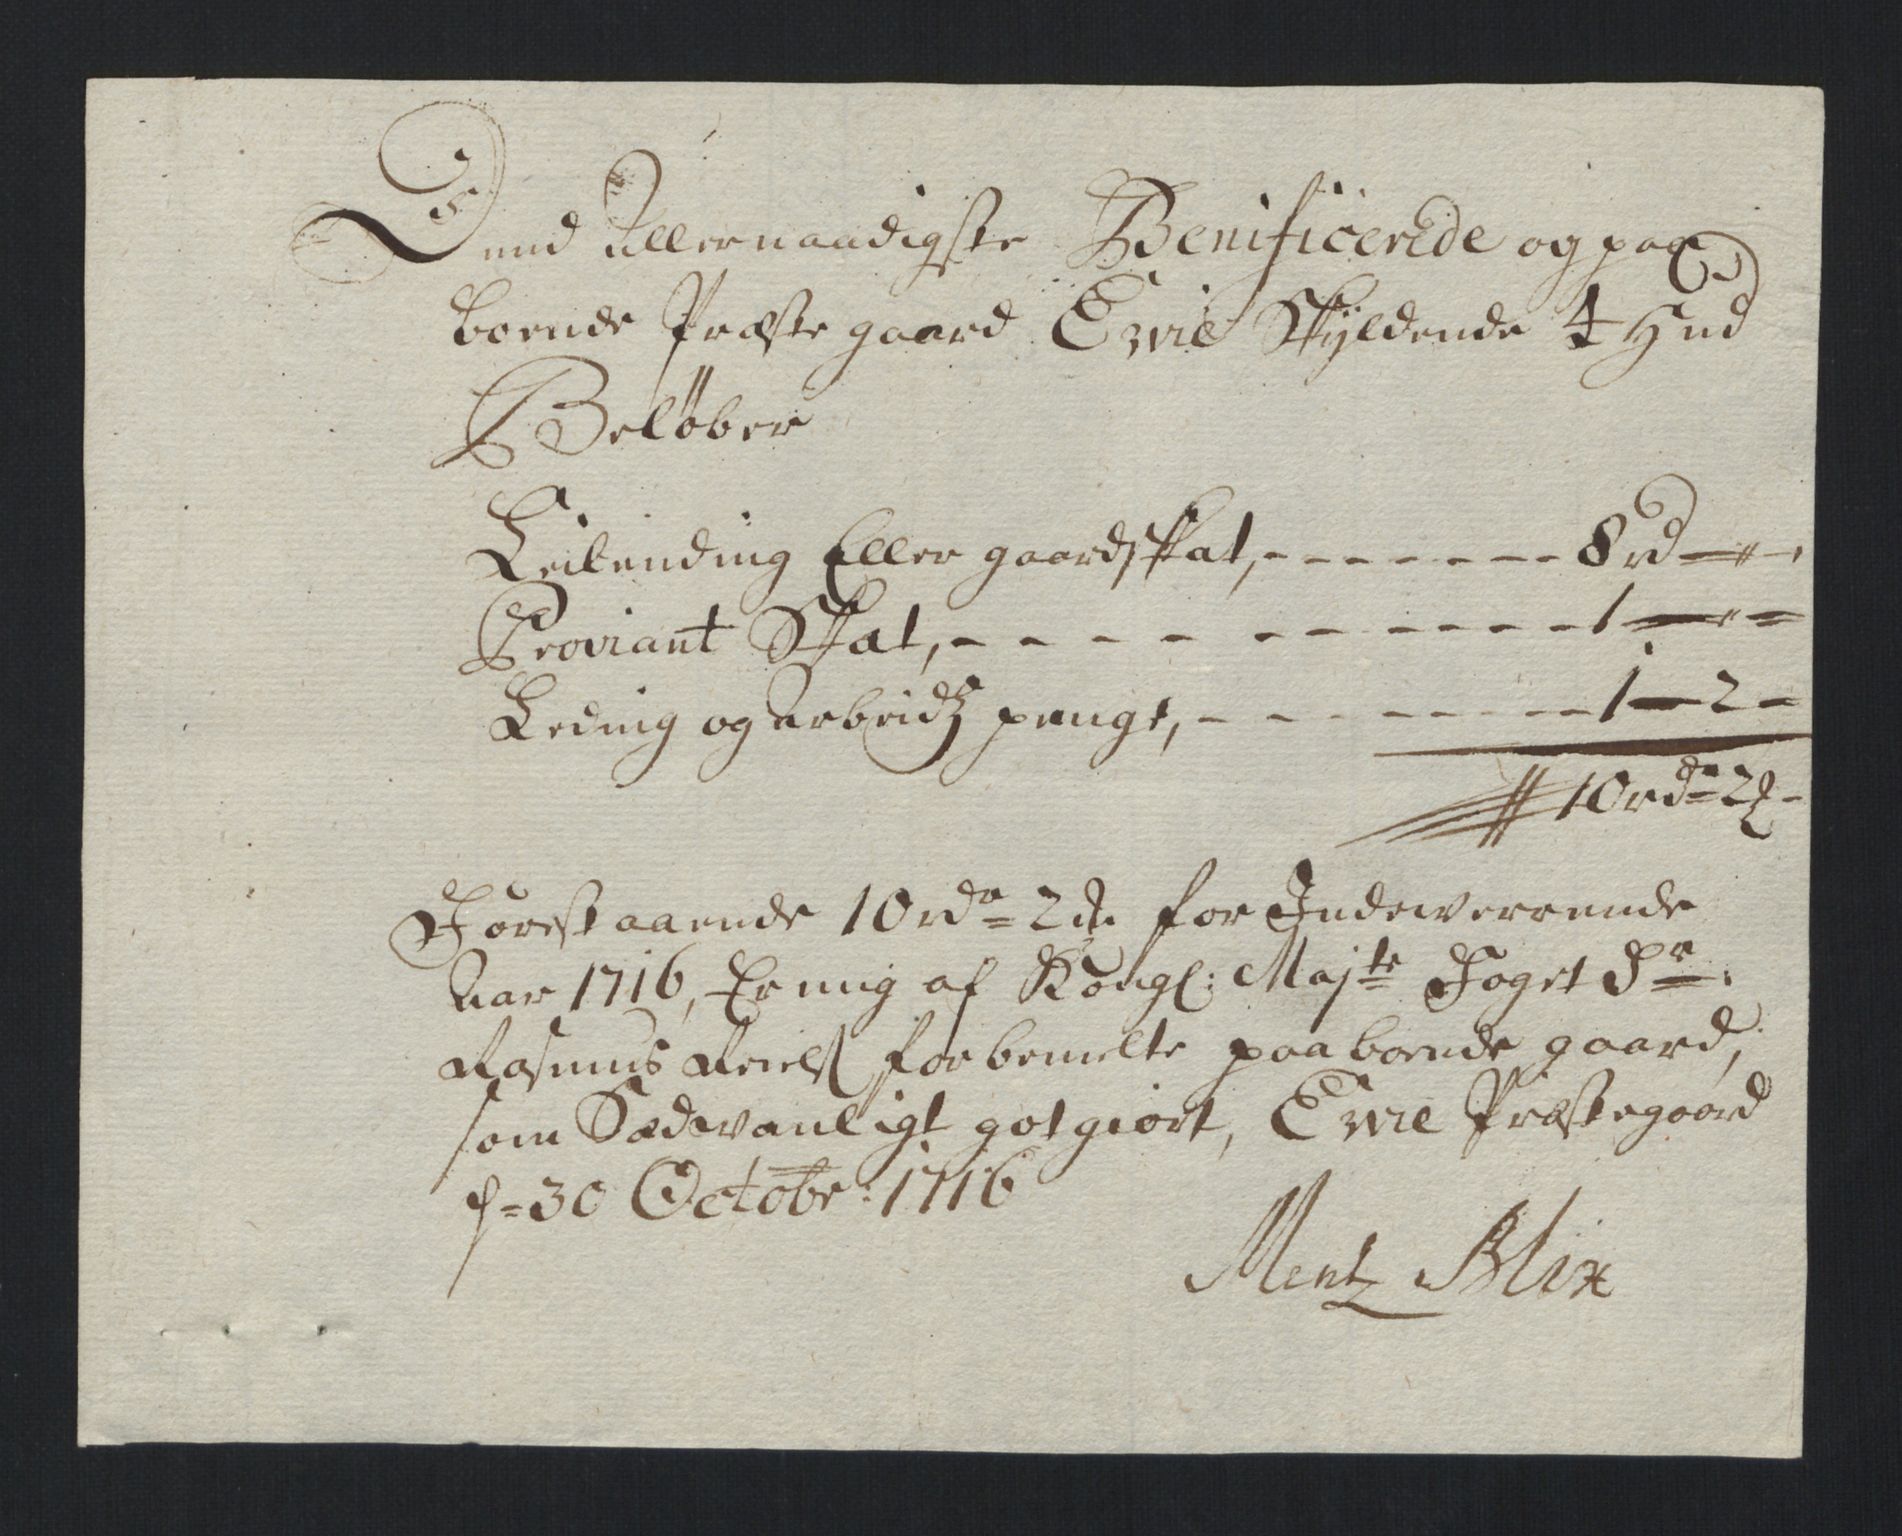 Dend Allernaadigste Benificerede og paa
boende Præste gaard Evie Skyldende 4 Hud
Beløber
Leilending Eller gaardskat, - - - - - - - 8 rd — " -
Proviant Skat, - - - - - - - - - - 1 — " -
Leding og arbeidtz penge, - - - - - - - 1 — 2 -
10 rdr 2 ß -
Forestaaende 10 rdr 2 ß for Indeverrende
Aar 1716, Er mig af Kongl: Majts Foget Sr:
Rasmus forbemelte paaboende gaard,
som Sædevanligt gotgiort, Evie Præstegaard
d = 30 Octobr: 1716
Mentz Blix